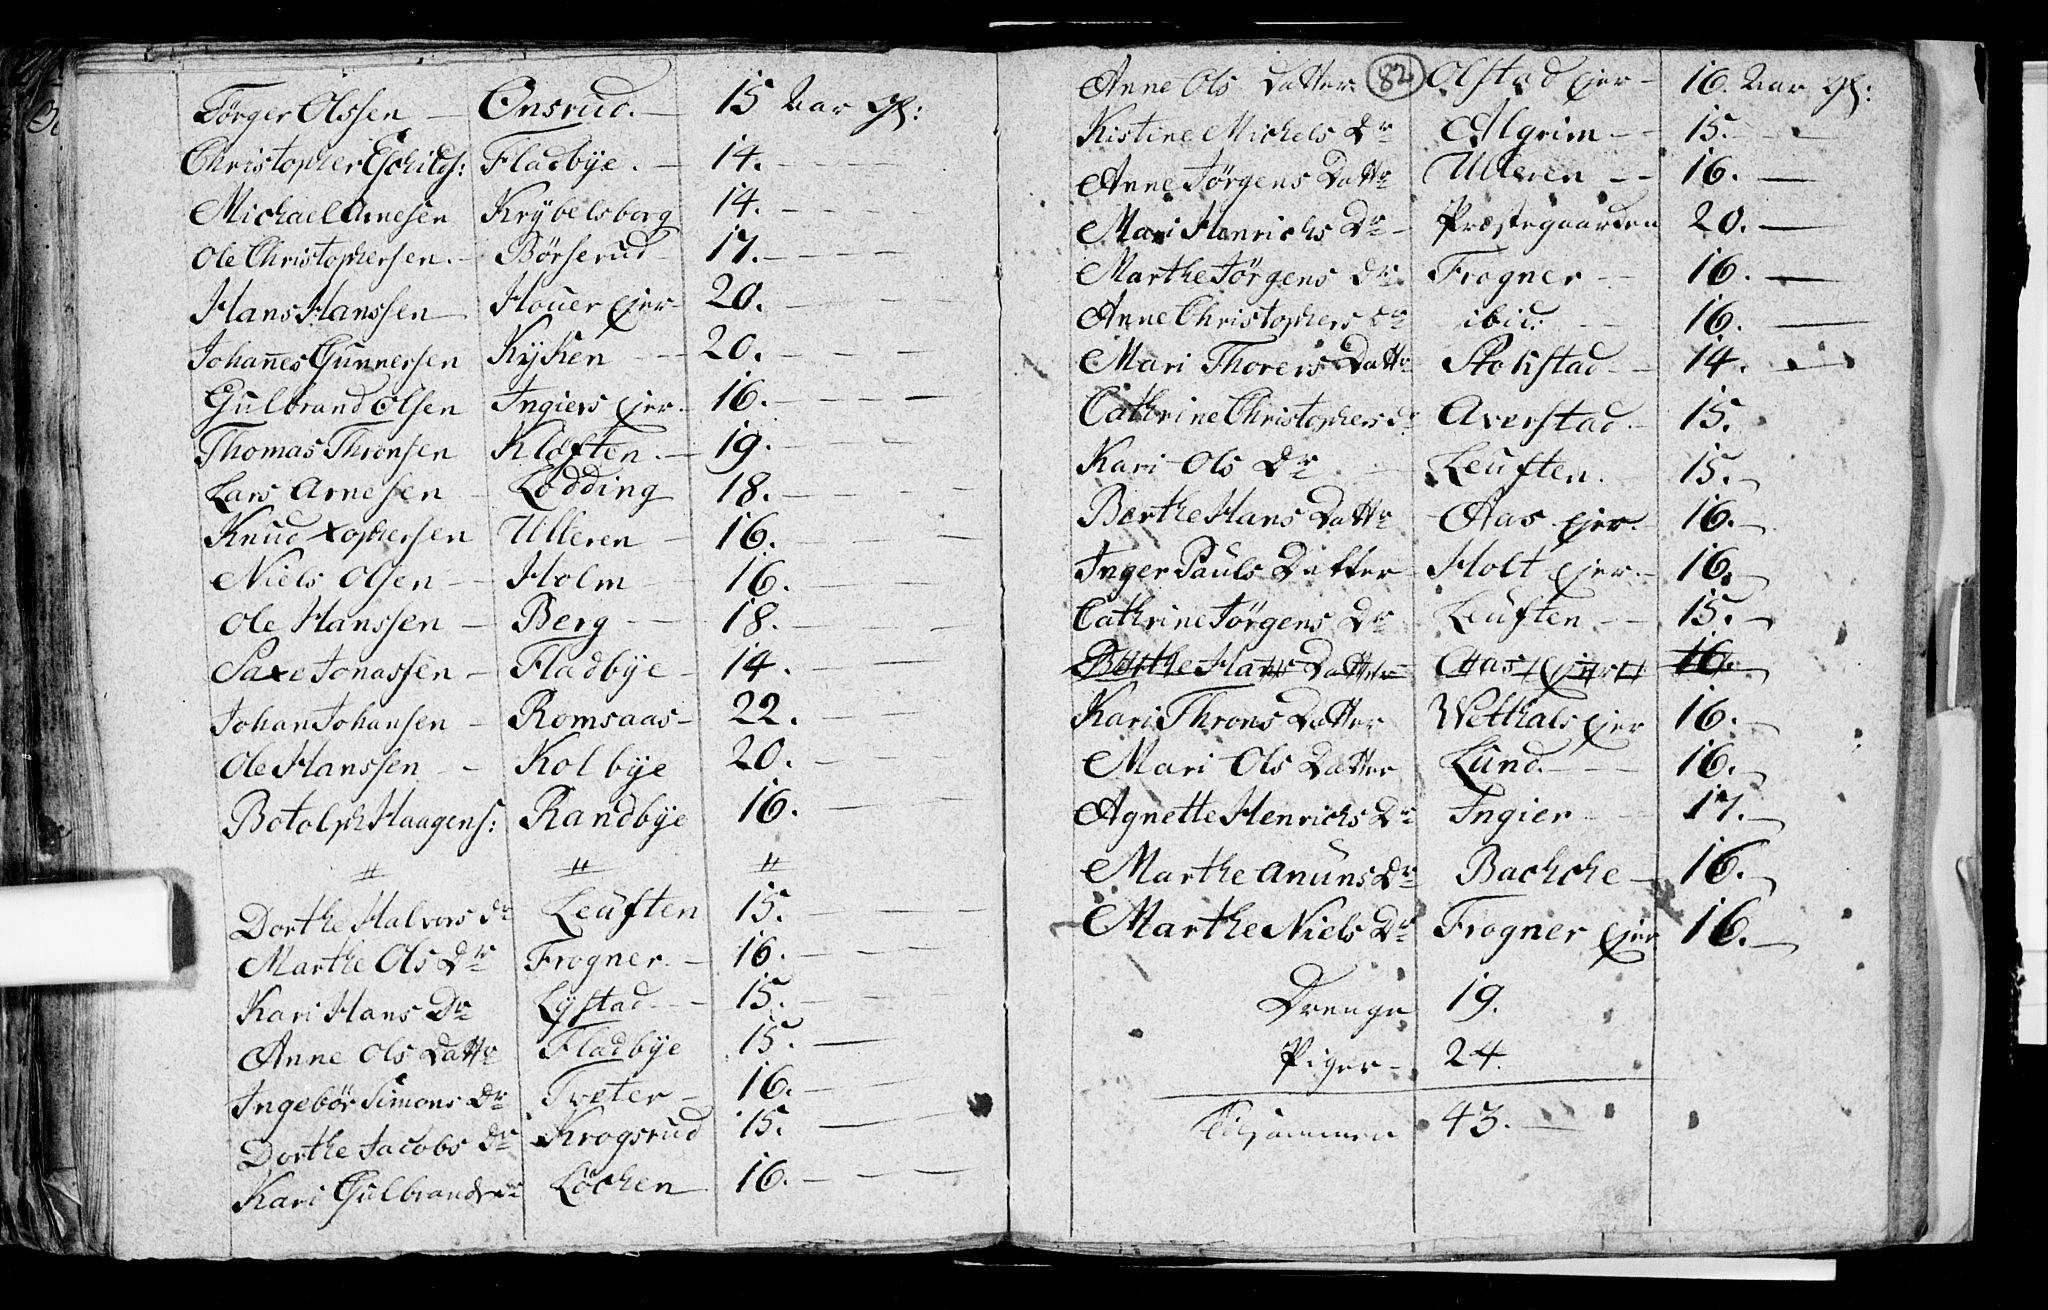 Törger Olssen — Onsrud. — 15 Aar gl:
Christopher Eschilds: Fladbÿe. — 14. — — —
Michael Arnesen Krÿbelsborg 14. — — —
Ole Christophersen. — Börserud — 17. — — —
Hans Hanssen — Houer Ejer — 20. — — —
Johannes Gunnersen Kÿken — — 20. — — —
Gulbrand Olsen Ingiers Ejer. 16. — — —
Thomas Thronsen Klöften. — 19. — — —
Lars Arnesen — Lodding 18. — — —
Knud Xophersen Ulleren — 16. — — —
Niels Olsen — Holm — 16. — — —
Ole Hanssen — Berg — — 18. — — —
Saxe Jonassen — Fladbÿe — 14. — — —
Johan Johansen — Romsaas — 22. — — —
Ole Hanssen — Kolbÿe 20. — — —
Botolph Haagens: Randbÿe 16. — — —
〃 〃 〃
Dorthe Halvors dr Leuften 15. — — —
Marthe Ols Dr Frogner. — 16. — — —
Kari Hans Dr Lÿstad — — 15. — — —
Anne Ols Dattr Fladbÿe 15. — — —
Ingebör Simons Dr Tveter — 16. — — —
Dorthe Jacobs dr Krogsrud 15. — — —
Kari Gulbrands dr Löchen — 16. — — —
82
Anne Ols Datter Olstad Ejer — 16. Aar gl:
Kistine Michels Dr Algrim — — 15. — —
Anne Jörgens Dattr Ulleren — — 16. —
Mari Henrichs Dr — Præstegaarden 20. —
Marthe Jörgens Dr. Frogner — 16. —
Anne Christophers Dr ibid: — — 16. —
Mari Thorers Dattr Stokstad — 14. — —
Cathrine Christophers dr Averstad. — 15.
Kari Ols Dr — Leuften. 15. —
Berthe Hans Dattr Aas Ejer. — 16. —
Inger Pauls Datter — Holt Ejer. — 16. —
Cathrine Jörgens Dr Leuften — — 15. —
Berthe Hans Datter Aas Ejer 16.
Kari Throns Datter Wethals Ejer 16. —
Mari Ols Datter Lund. — — 16. —
Agnette Henrichs Dr Ingier — — 17. —
Marthe Anuns Dr Bachche — 16. —
Marthe Niels Dr Frogner Ejer 16. —
Drenge 19.
Piger — 24.
Tilsammen 43. —